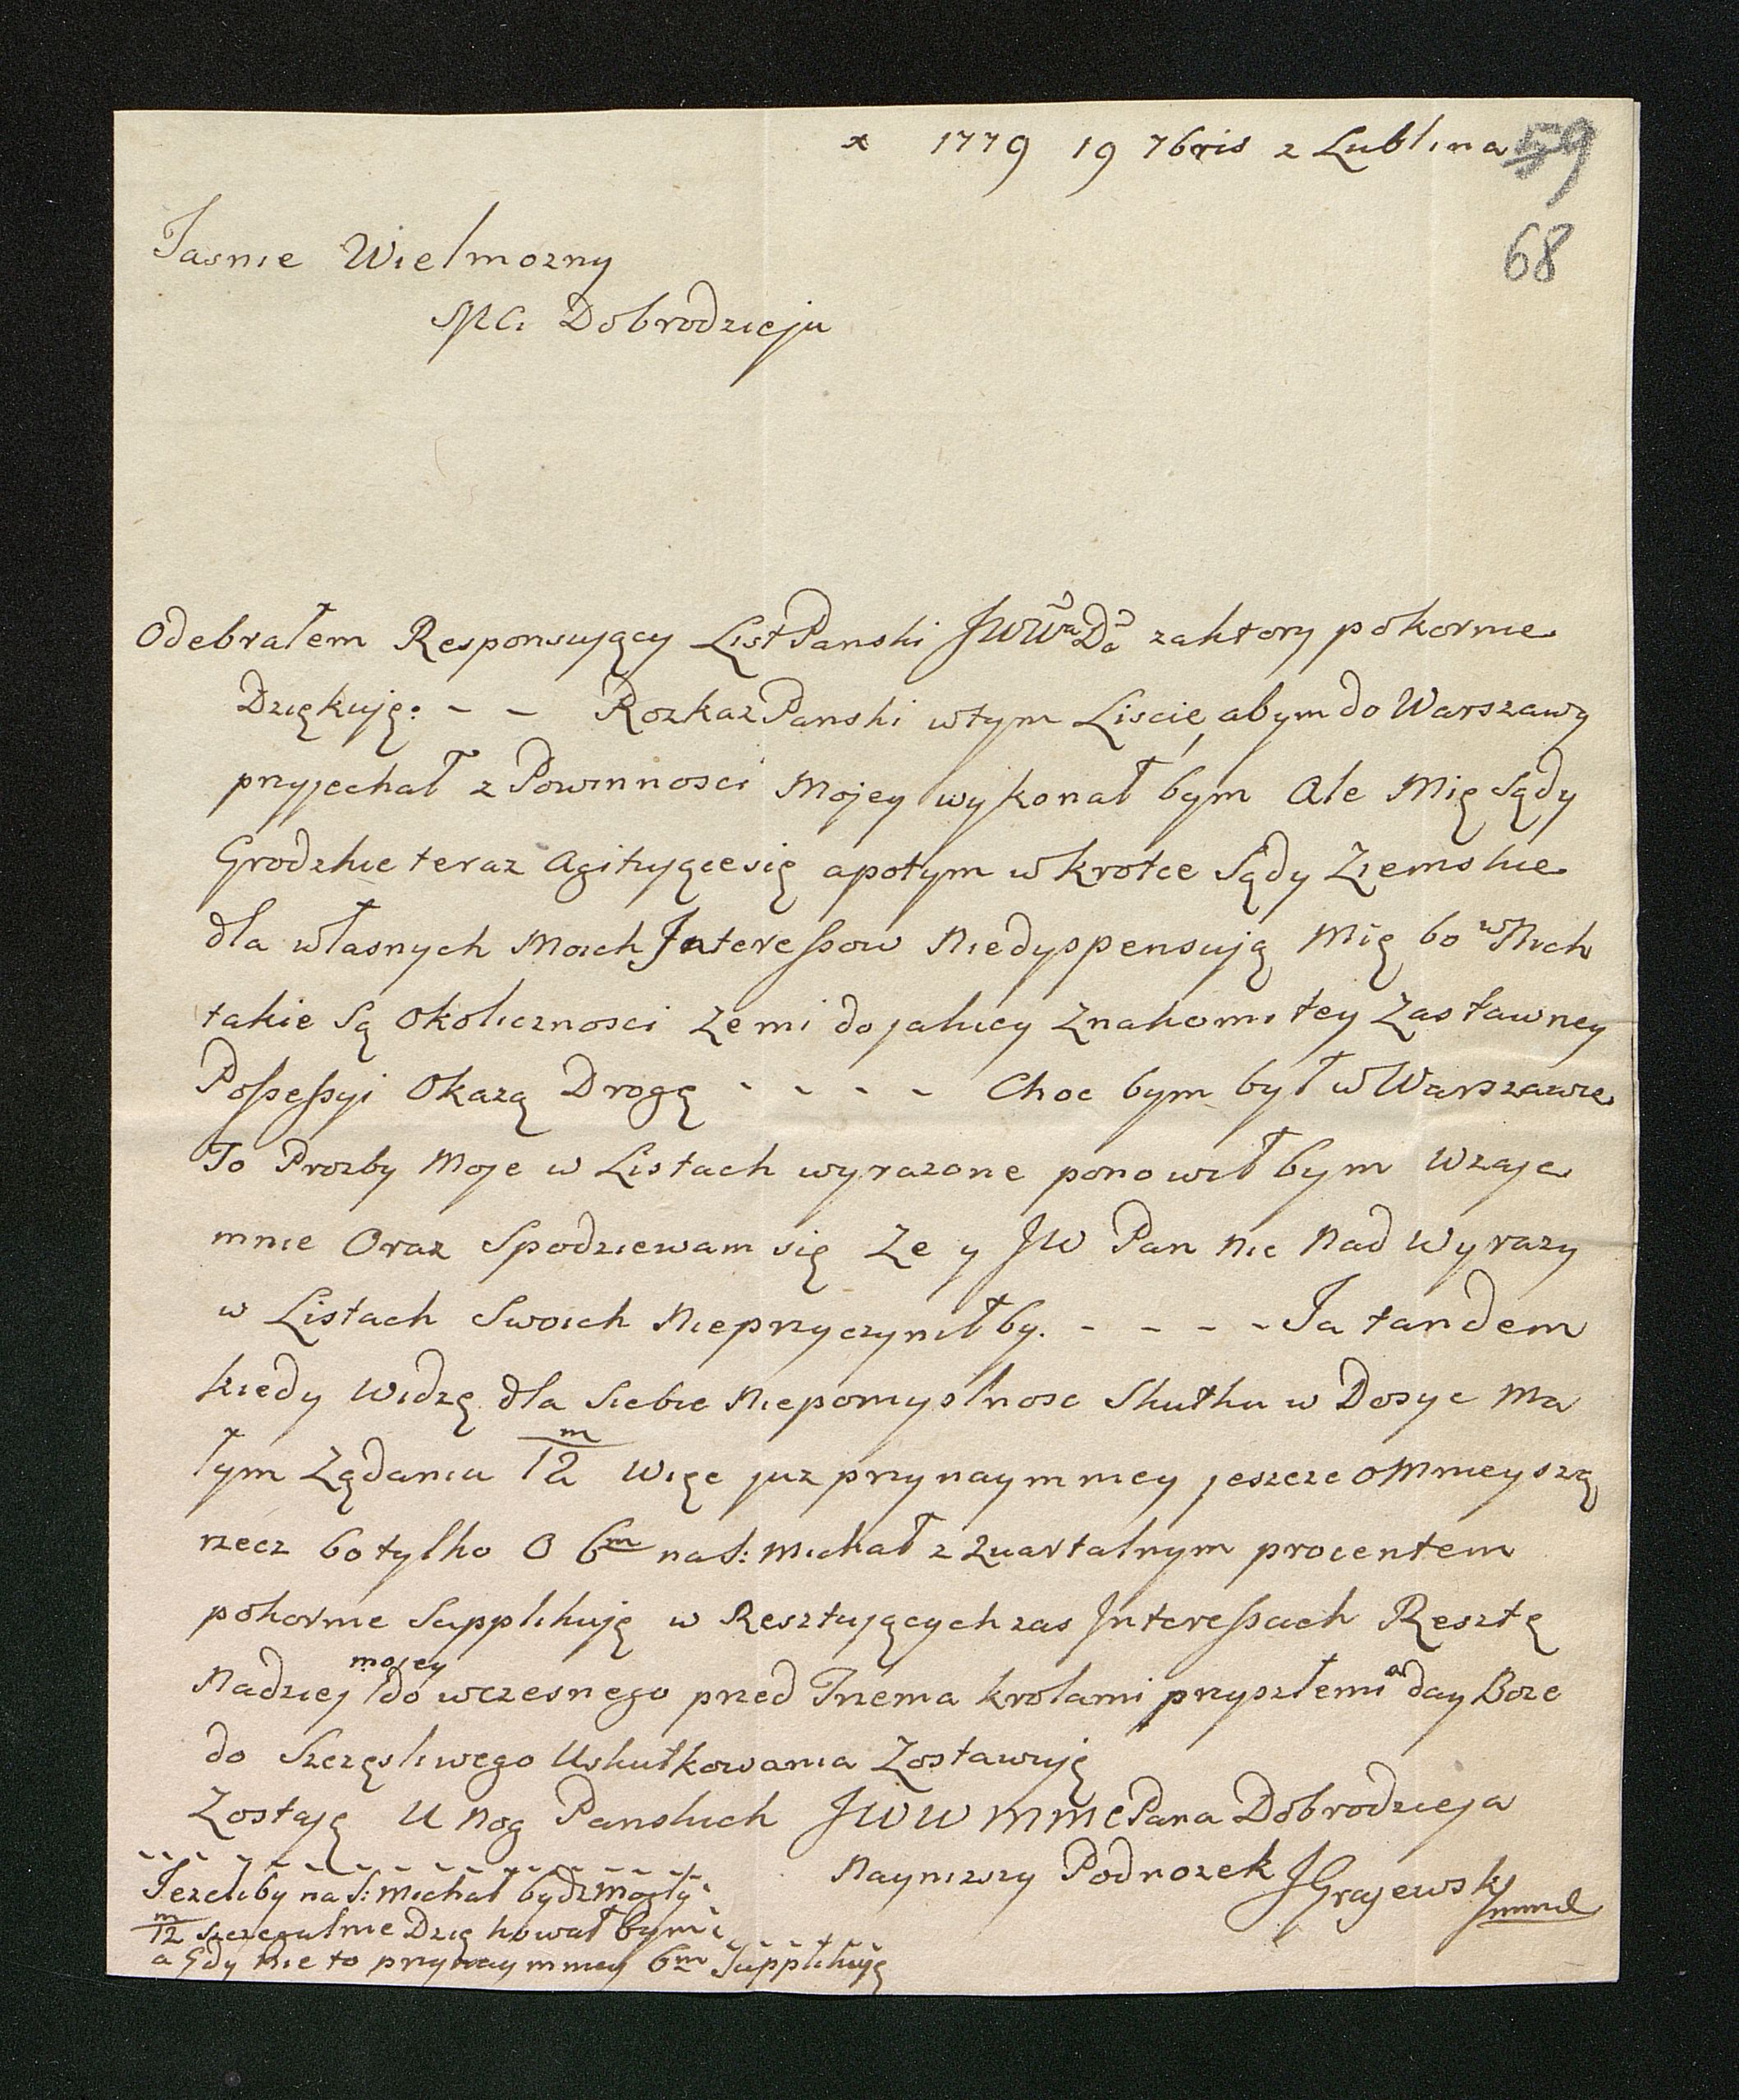 x 1779 19 7bris z Lublina 59
68
Jasnie Wielmozny
Mci Dobrodzieju
Odebrałem Responsujący List Panski JWWa Da zaktory pokornie
Dziękuję: - - Rozkaz Panski wtym Liscie, abym do Warszawy
przyjechał z Powinnosci Mojey wykonał bym Ale Mię Sądy
Grodzkie teraz Agitujące się apotym wkrotce Sądy Ziemskie
dla własnych Moich Interessow Niedyspensują Mię bo w Nich
takie Są Okolicznosci Ze mi do jakiey Znakomitey Zastawney
Possessyi Okażą Drogę - - - - Choc bym był w Warszawie
To Prozby Moje w Listach wyrazone ponowił bym Wzaje
mnie Oraz Spodziewam się Ze y JW Pan nic Nad Wyrazy
w Listach Swoich Nieprzyczynił by. - - - - Ja tandem
kiedy Widzę dla Siebie Niepomyslnosc Skutku w Dosyc Ma
łym Ządaniu 12 m Więc juz przynaymniey jeszcze O Mnieyszą
rzecz bo tylko O 6m na S: Michał z Quartalnym procentem
pokornie Supplikuję w Resztujących zas Interessach Resztę
Nadziej mojey do wczesnego przed Trzema krolami przyszłemi a day Boze
do Szczęsliwego Uskutkowania Zostawuję
Zostaję U Nog Panskich JWW MMC Pana Dobrodzieja
Naynizszy Podnozek JGrajewski
mmd
Jezeliby na S: Michał bydz mogły
12 m szczegulnie Dziękował bym
a Gdy Nie to przynaymniey 6m Supplikuję